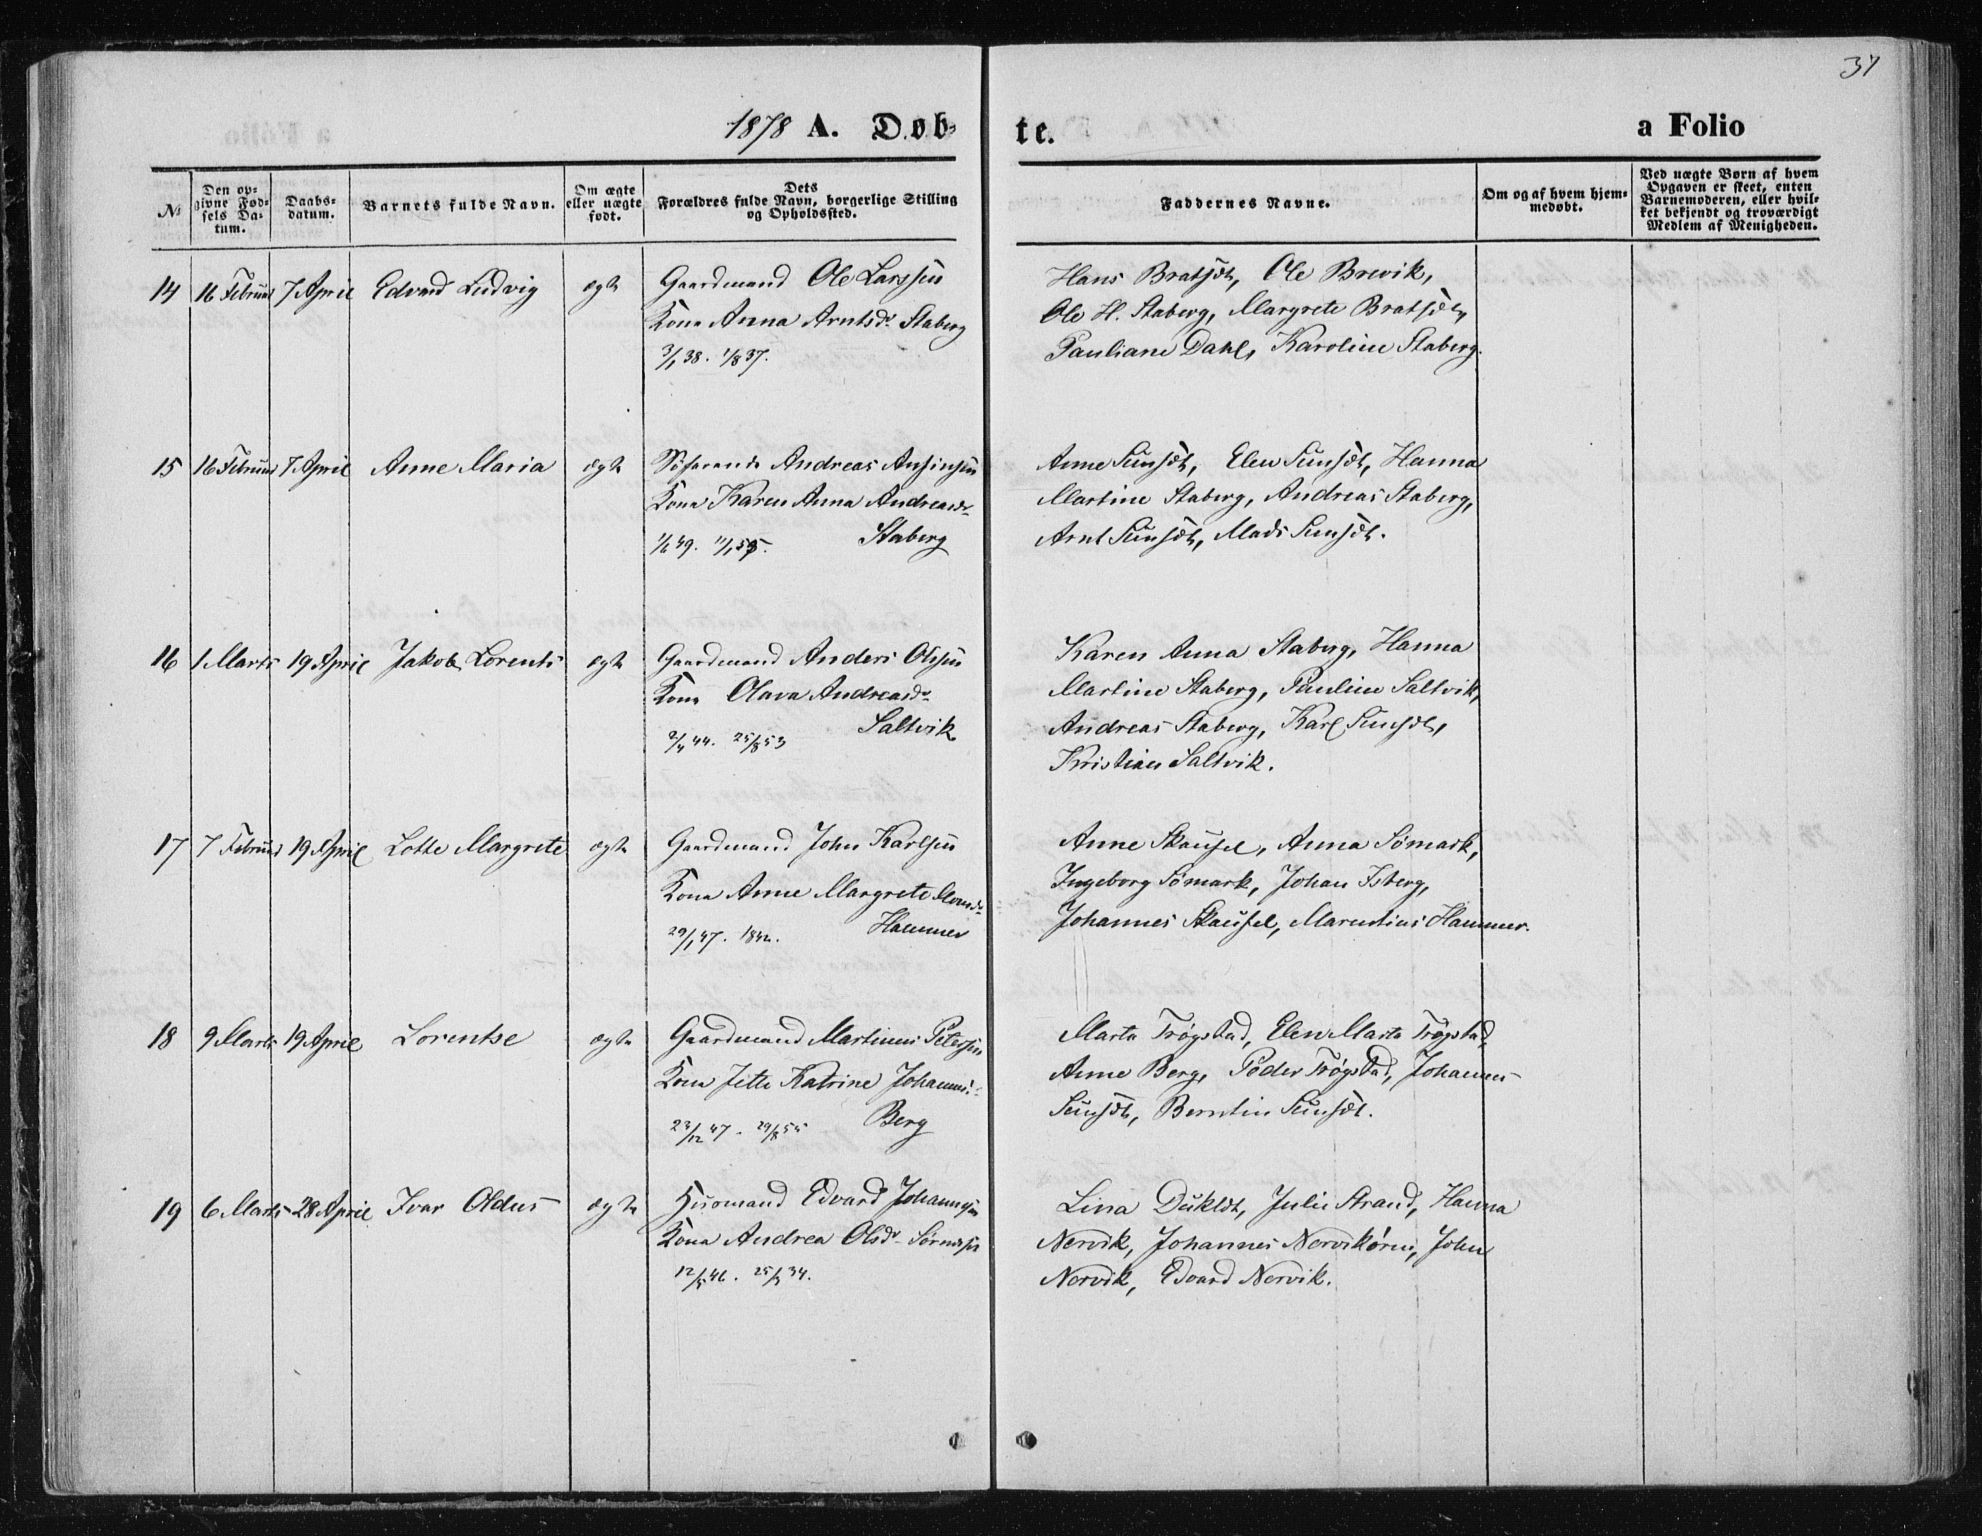 37
1878 A. Døb-
te.
a Folio
No
Den op-
givne Fød-
sels Da-
tum.
Daabs-
datum.
Barnets fulde Navn.
Om ægte
eller uægte
født.
Dets
Forældres fulde Navn, borgerlige Stilling
og Opholdssted.
Faddernes Navne.
Om og af hvem hjem-
medøbt.
Ved uægte Børn af hvem
Opgaven er skeet, enten
Barnemoderen, eller hvil-
ket bekjendt og troværdigt
Medlem af Menigheden.
14 16 Februar 7 April Edvard Ludvig ægte Gaardmand Ole Larssen
Kona Anna Arntsdr Staberg
3/1 38. 1/8 37.
Hans Bratsdt, Ole Brevik,
Ole H. Staberg, Margrete Bratsdt,
Pauliane Dahl, Karoline Staberg.
15 16 Februar 7 April Anne Maria ægte Søfarende Andreas
Kona Karen Anna Andreasdr
Staberg
Anne Sunsdt, Elen Sunsdt, Hanna
Martine Staberg, Andreas Staberg,
Arnt Sunsdt, Mads Sunsdt.
16 1 Marts 19 April Jakob Lorents ægte Gaardmand Anders Olssen
Kona Olava Andreasdr
Saltvik
2/4 44. 25/8 53
Karen Anna Staberg, Hanna
Martine Staberg, Pauline Saltvik,
Andreas Staberg, Karl Sunsdt,
Kristian Saltvik.
17 7 Februar 19 April Lotte Margrete ægte Gaardmand John Karlsen
Kona Anne Margrete
Hammer
29/1 47. 1842.
Anne Skaufel, Anna Sömark,
Ingeborg Sömark, Johan Isberg,
Johannes Skaufel, Marentius Hammer.
18 9 Marts 19 April Lorentse ægte Gaardmand Martinus Petersen
Kona Jette Katrine Johannesd.
Berg
23/12 47. 29/8 55
Marta Trøgstad, Elen Marta Trøgstad,
Anne Berg, Peder Trøgstad, Johannes
Sunsdt, Berntin Sunsdt.
19 6 Marts 28 April Ivar Oldus ægte Husmand Edvard Johannesen
Kona Andrea Olsdr
12/5 46. 25/3 34.
Lina Dukldt, Julie Strand, Hanna
Nervik, Johannes Nervikøren, John
Nervik, Edvard Nervik.